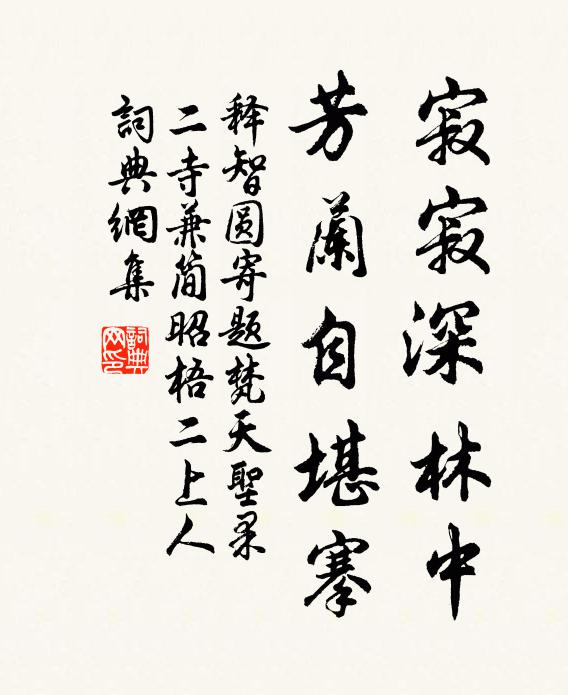 寂寂深林中
芳蘭自堪搴
释智圆寄题梵天聖果
二寺兼简昭梧二上人
詞典網集
詞典网印